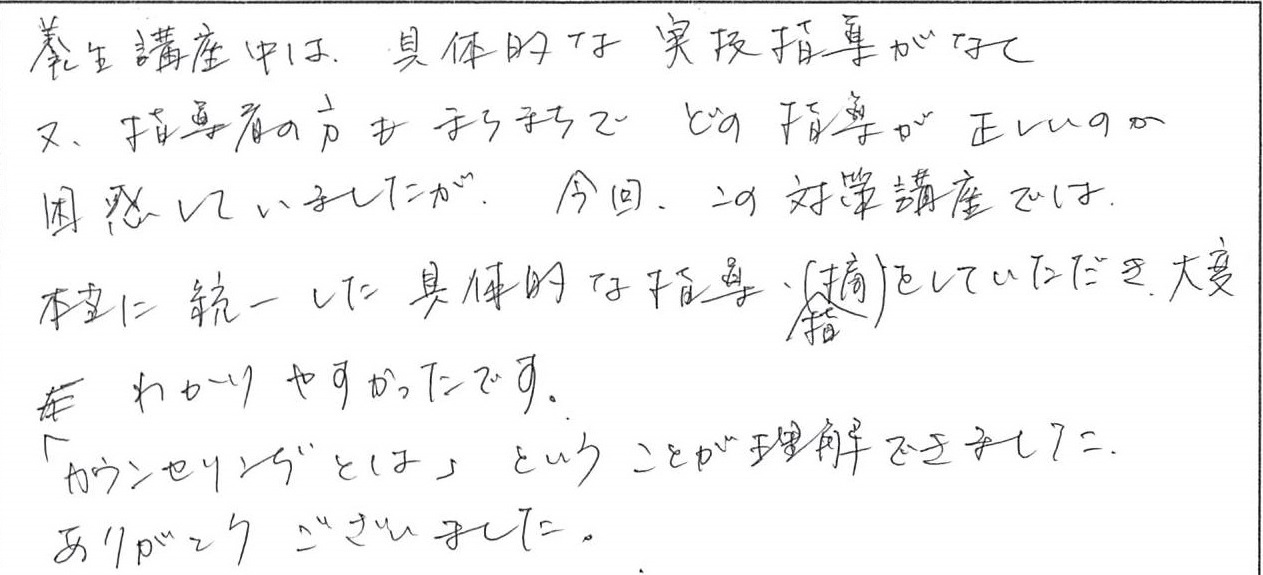 養生講座中は、具体的な実技指導がなく
又、指導者の方もまちまちでどの指導が正しいのか
困惑していましたが、今回、この対策講座では、
本当に統一した具体的な指導・(指摘)をしていただき、大変
わかりやすかったです。
「カウンセリングとは」ということが理解できました。
ありがとうございました。